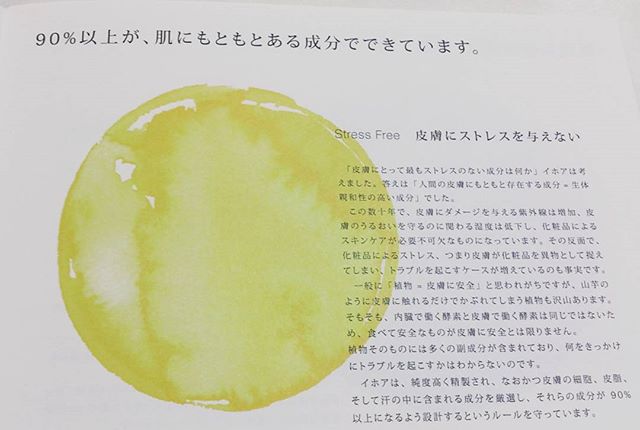 90%以上が、肌にもともとある成分でできています。
Stress Free 皮膚にストレスを与えない
「皮膚にとって最もストレスのない成分は何か」イホアは考
えました。答えは「人間の皮膚にもともと存在する成分＝生体
親和性の高い成分」でした。
この数十年で、皮膚にダメージを与える紫外線は増加、皮
膚のうるおいを守るのに関わる湿度は低下し、化粧品による
スキンケアが必要不可欠なものになっています。その反面で、
化粧品によるストレス、つまり皮膚が化粧品を異物として捉え
てしまい、トラブルを起こすケースが増えているのも事実です。
一般に「植物＝皮膚に安全」と思われがちですが、山芋の
ように皮膚に触れるだけでかぶれてしまう植物も沢山あります。
そもそも、内臓で働く酵素と皮膚で働く酵素は同じではないた
め、食べて安全なものが皮膚に安全とは限りません。
植物そのものには多くの副成分が含まれており、何をきっかけ
にトラブルを起こすかはわからないのです。
イホアは、純度高く精製され、なおかつ皮膚の細胞、皮脂、
そして汗の中に含まれる成分を厳選し、それらの成分が 90%
以上になるよう設計するというルールを守っています。